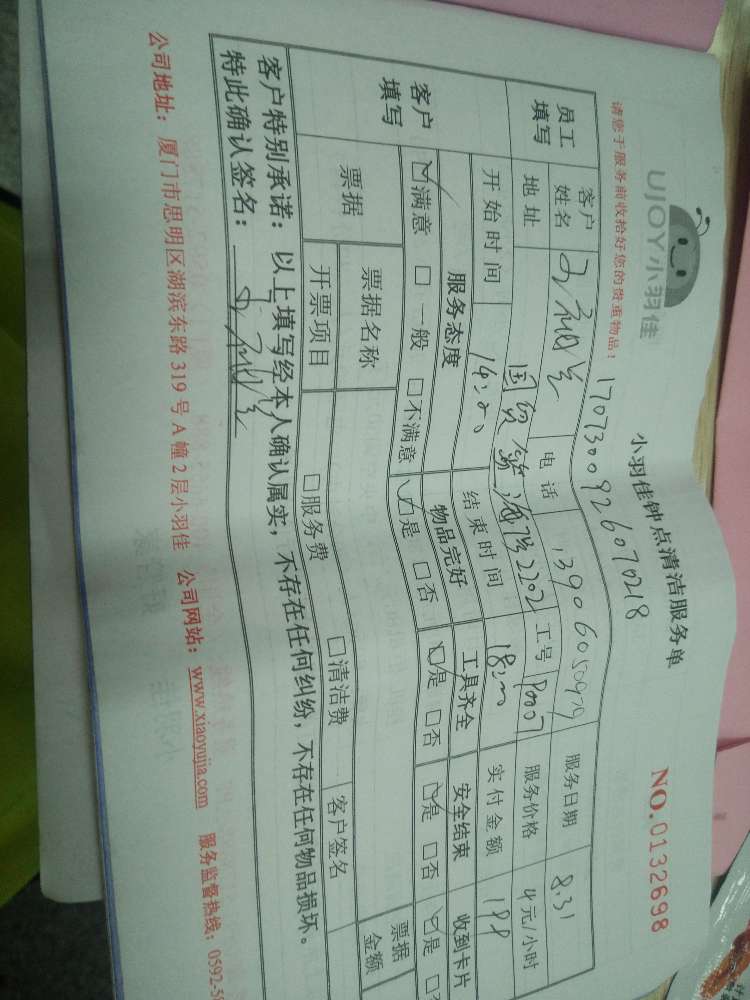 UJOY小羽佳
小羽佳钟点清洁服务单
NO.0132698
请您于服务前收拾好您的贵重物品！
1707300926070218
员工填写
客户姓名
电话
服务日期 8.31
地址 国贸 2202
工号 P0007
服务价格 4元/小时
开始时间 14:00
结束时间 18:00
实付金额 188
客户填写
服务态度 物品完好 工具齐全 安全结束 收到卡片
☑满意 □一般 □不满意 ☑是 □否 ☑是 □否 ☑是 □否 ☑是 □否
票据
票据名称
客户签名
票据金额
开票项目 □服务费 □清洁费
客户特别承诺：以上填写经本人确认属实，不存在任何纠纷，不存在任何物品损坏。
特此确认签名：
公司地址：厦门市思明区湖滨东路319号A幢2层小羽佳 公司网站：www.xiaoyujia.com 服务监督热线：0592-5